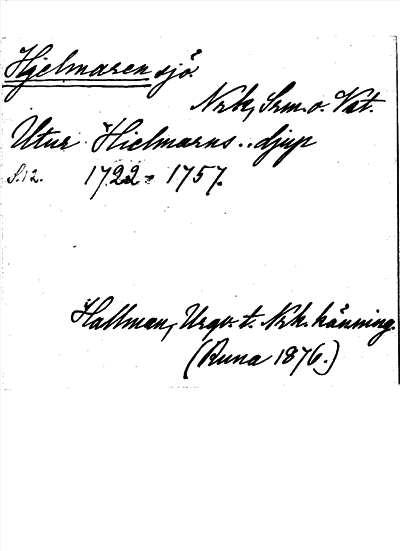 Hjelmaren sjö.
Nrk, Srm. o. Vst.
Utur Hielmarns .. djup
S. 12. 1722 - 1757.
Hallman, Urgv. t. Nrk. känning.
(Runa 1876.)